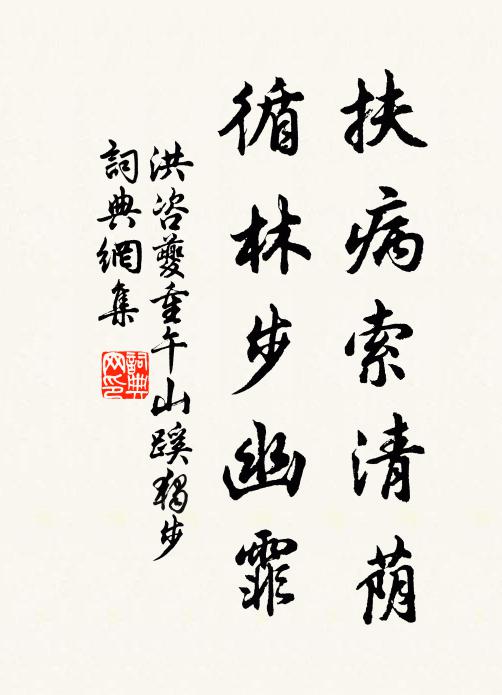 扶病索清荫
循林步幽霏
洪咨夔重午山蹊獨步
詞典網集
詞典网印